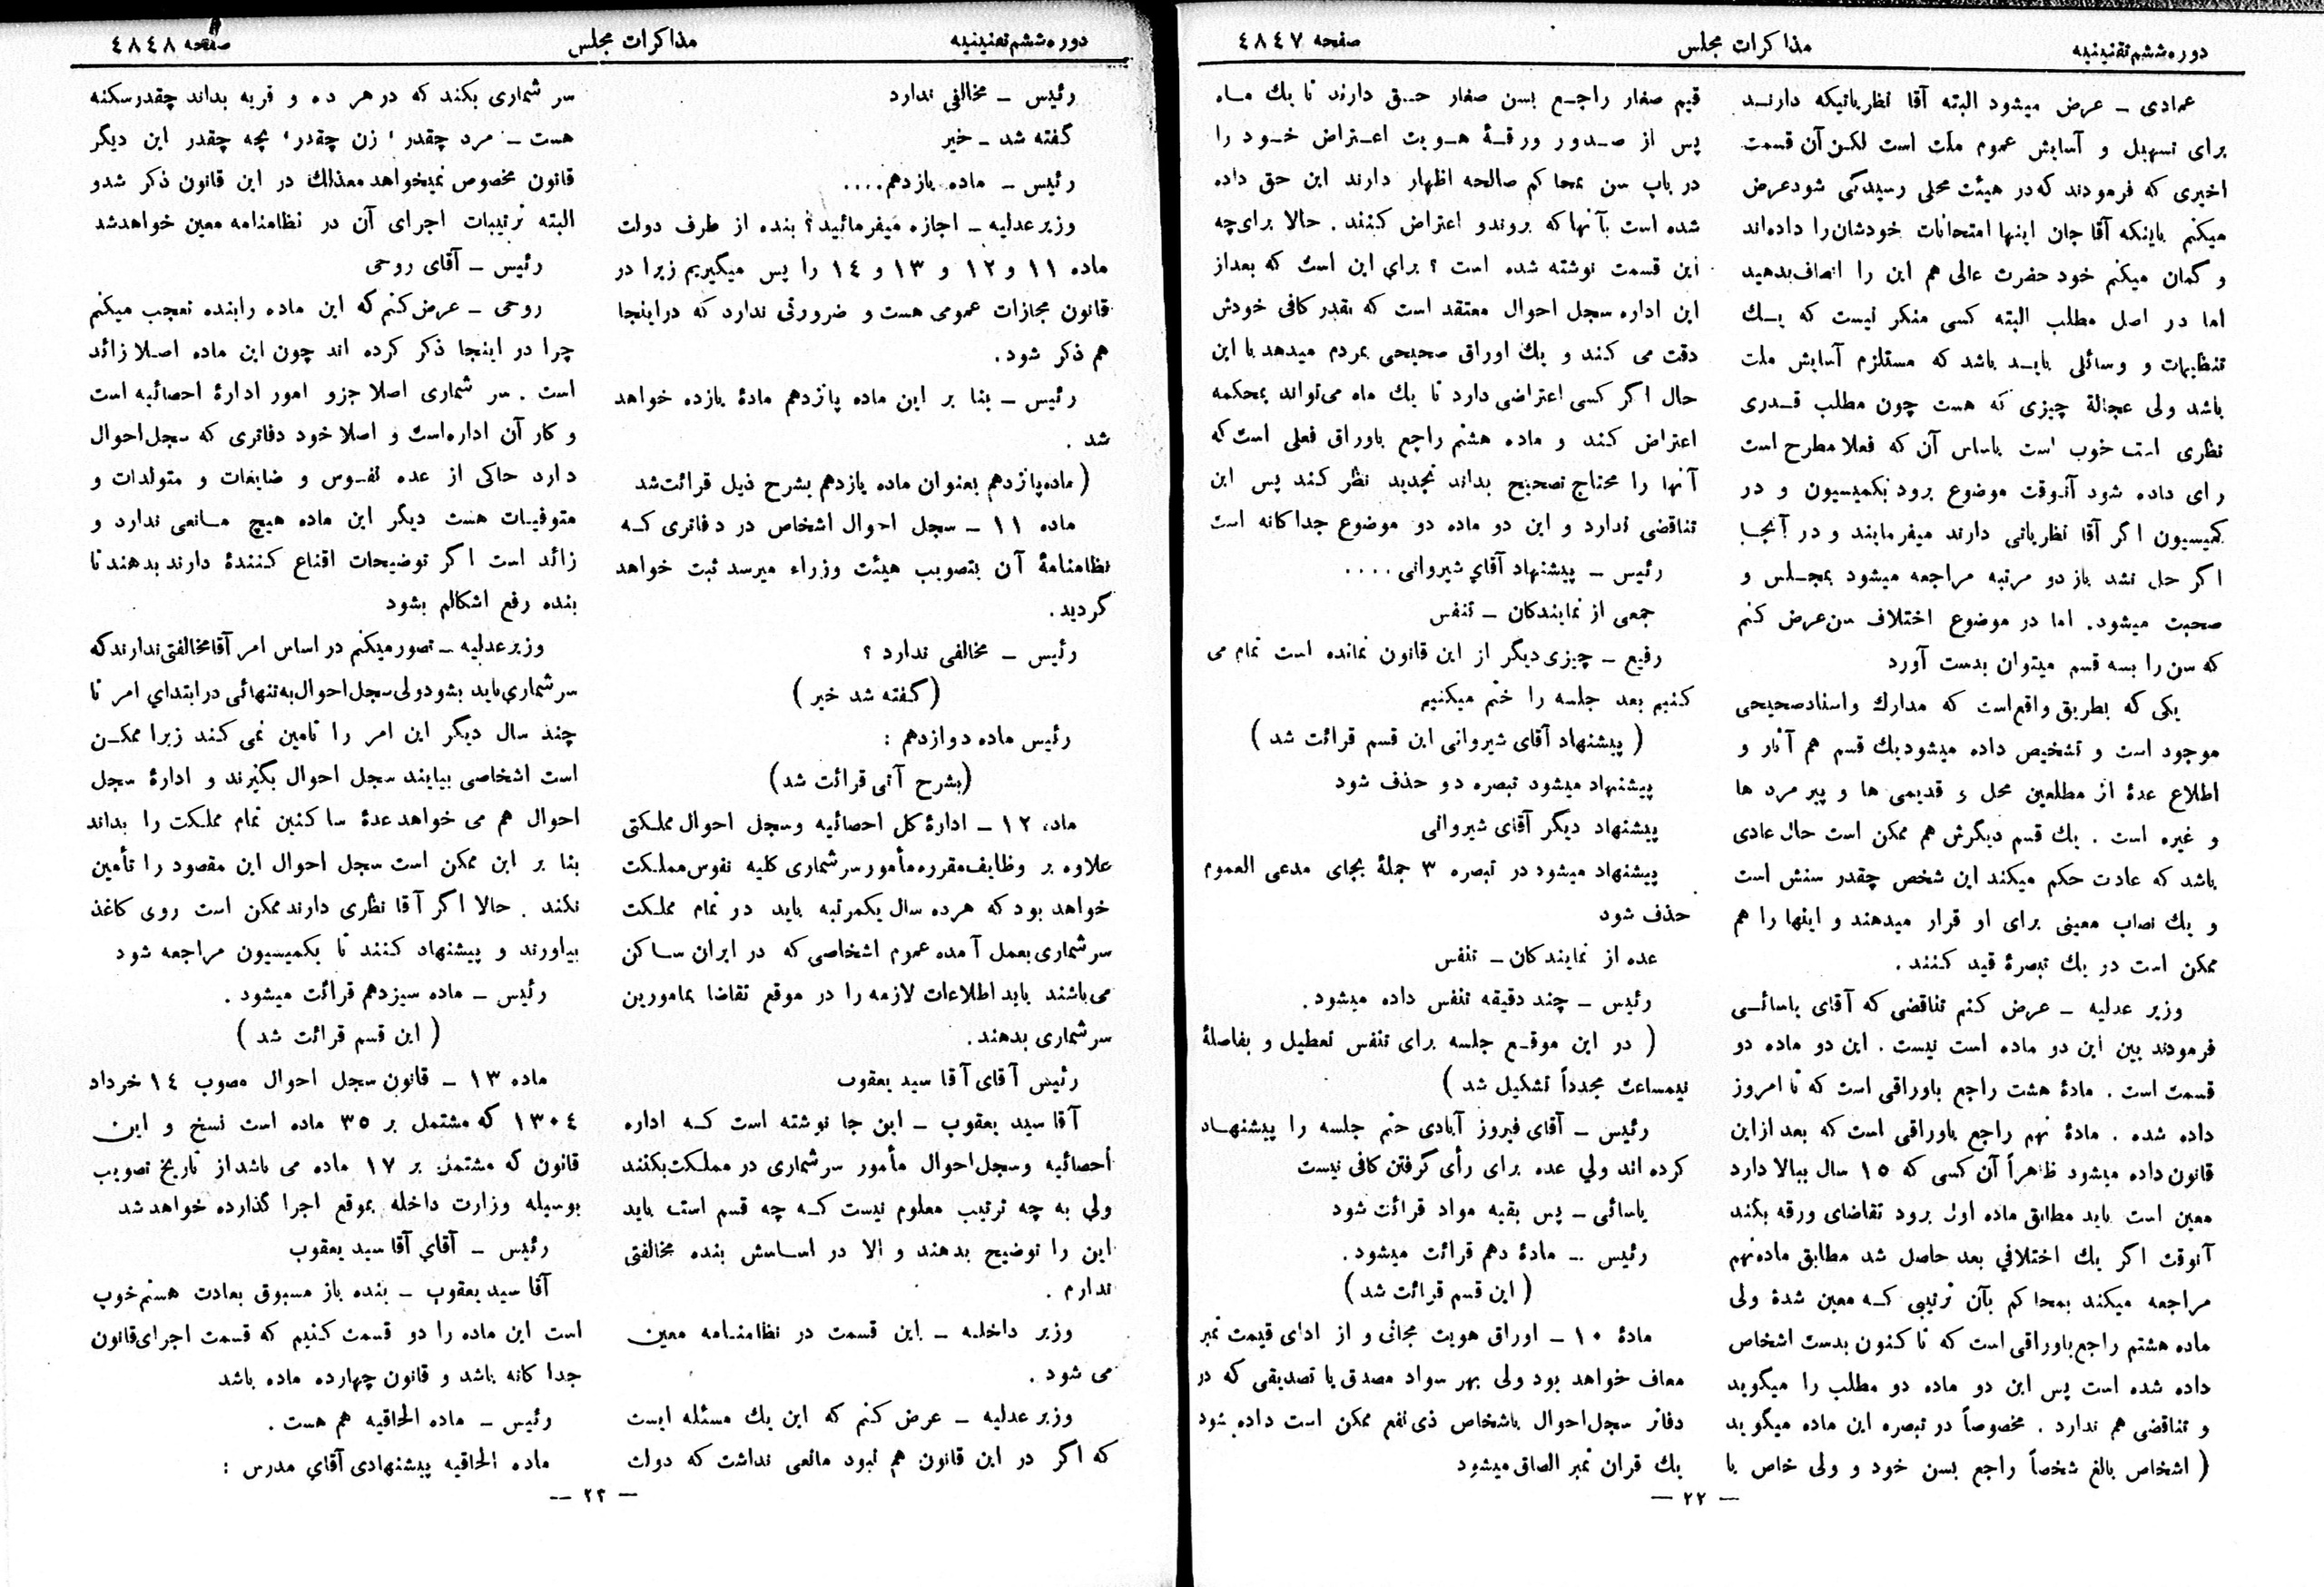 دوره ششم تقنینیه
مذاکرات مجلس
صفحه ٤٨٤٧
عمادی ــ عرض میشود البته آقا نظریاتیکه دارنـد
برای تسهیل و آسایش عموم ملت است لکن آن قسمت
اخیری که فرمودند که در هیئت محلی رسیدگی شود عرض
میکنم باینکه آقا جان اینها امتحانات خودشان را داده‌اند
و گمان میکنم خود حضرت عالی هم این را انصاف بدهید
اما در اصل مطلب البته کسی منکر نیست که یـك
تنظیمات و وسائلی بایـد باشد که مستلزم آسایش ملت
باشد ولی عجالة چیزی که هست چون مطلب قـدری
نظری است خوب است باساس آن که فعلا مطرح است
رای داده شود آنوقت موضوع برود بکمیسیون و در
کمیسیون اگر آقا نظریاتی دارند میفرمایند و در آنجـا
اگر حل نشد باز دو مرتبه مراجعه میشود بمجـلس و
صحبت میشود. اما در موضوع اختلاف سن عرض کنم
که سن را بسه قسم میتوان بدست آورد
یکی که بطریق واقع است که مدارك و اسناد صحیحی
موجود است و تشخیص داده میشود یك قسم هم آثار و
اطلاع عدهٔ از مطلعین محل و قدیمی ها و پیر مرد ها
و غیره است . یك قسم دیگرش هم ممکن است حال عادی
باشد که عادت حکم میکند این شخص چقدر سنش است
و یك نصاب معینی برای او قرار میدهند و اینها را هم
ممکن است در یك تبصرهٔ قید کنند .
وزیر عدلیه ــ عرض کنم تناقضی که آقای یاسائـی
فرمودند بین این دو ماده است نیست . این دو ماده دو
قسمت است . مادهٔ هشت راجع باوراقی است که تا امروز
داده شده . مادهٔ نهم راجع باوراقی است که بعد ازاین
قانون داده میشود ظاهراً آن کسی که ١٥ سال ببالا دارد
معین است باید مطابق ماده اول برود تقاضای ورقه بکند
آنوقت اگر یك اختلافي بعد حاصل شد مطابق ماده نهم
مراجعه میکند بمحاکم بآن ترتیبی کـه معین شدهٔ ولی
ماده هشتم راجع باوراقی است که تا کنون بدست اشخاص
داده شده است پس این دو ماده دو مطلب را میگوید
و تناقضی هم ندارد . مخصوصاً در تبصره این ماده میگوید
( اشخاص بالغ شخصاً راجع بسن خود و ولی خاص یا
قیم صغار راجـع بسن صغار حـق دارند تا یك مـاه
پس از صـدور ورقـهٔ هـویت اعـتراض خـود را
در باب سن بمحاکم صالحه اظهار دارند این حق داده
شده است بآنها که بروندو اعتراض کنند . حالا برای‌چه
این قسمت نوشته شده است ؟ برای این است که بعداز
این اداره سجل احوال معتقد است که بقدر کافی خودش
دقت می کند و یك اوراق صحیحی بمردم میدهد با این
حال اگر کسی اعتراضی دارد تا یك ماه می‌تواند بمحکمه
اعتراض کند و ماده هشتم راجع باوراق فعلی است که
آنها را محتاج تصحیح بداند تجدید نظر کند پس این
تناقضی ندارد و این دو ماده دو موضوع جداگانه است
رئیس ــ پیشنهاد آقاي شیروانی ....
جمعی از نمایندگان ــ تنفس
رفیع ــ چیزی دیگر از این قانون نمانده است تمام می
کنیم بعد جلسه را ختم میکنیم
( پیشنهاد آقای شیروانی این قسم قرائت شد )
پیشنهاد میشود تبصره دو حذف شود
پیشنهاد دیگر آقای شیروانی
پیشنهاد میشود در تبصره ٣ جملهٔ بجای مدعی العموم
حذف شود
عده از نمایندکان ــ تنفس
رئیس ــ چند دقیقه تنفس داده میشود.
( در این موقـع جلسه برای تنفس تعطیل و بفاصلهٔ
نیمساعت مجدداً تشکیل شد )
رئیس ــ آقای فیروز آبادی ختم جلسه را پیشنهـاد
کرده اند ولي عده برای رأی گرفتن کافی نیست
یاسائی ــ پس بقیه مواد قرائت شود
رئیس ــ مادهٔ دهم قرائت میشود.
( این قسم قرائت شد )
مادهٔ ١٠ ــ اوراق هویت مجانی و از ادای قیمت تمبر
معاف خواهد بود ولی بهر سواد مصدق یا تصدیقی که در
دفاتر سجل احوال باشخاص ذی نفع ممکن است داده شود
یك قران تمبر الصاق میشود
ــ ٢٢ ــ
دوره ششم تقنینیه
مذاکرات مجلس
صفحه ٤٨٤٨
رئیس ــ مخالفی ندارد
گفته شد ــ خیر
رئیس ــ ماده یازدهم....
وزیر عدلیه ــ اجازه میفرمائید؟ بنده از طرف دولت
ماده ١١ و ١٢ و ١٣ و ١٤ را پس میگیریم زیرا در
قانون مجازات عمومی هست و ضرورتی ندارد که دراینجا
هم ذکر شود.
رئیس ــ بنا بر این ماده پانزدهم مادهٔ یازده خواهد
شد .
( ماده پانزدهم بعنوان ماده یازدهم بشرح ذیل قرائت شد
ماده ١١ ــ سجل احوال اشخاص در دفاتری کـه
نظامنامهٔ آن بتصویب هیئت وزراء میرسد ثبت خواهد
گردید.
رئیس ــ مخالفی ندارد ؟
( گفته شد خیر )
رئیس ماده دوازدهم :
(بشرح آتی قرائت شد)
ماده ١٢ ــ ادارهٔ کل احصائیه وسجل احوال مملکتی
علاوه بر وظایف مقرره مأمور سرشماری کلیه نفوس مملکت
خواهد بود که هرده سال یکمرتبه باید در تمام مملکت
سرشماری بعمل آمده عموم اشخاصی که در ایران ساکن
می‌باشند باید اطلاعات لازمه را در موقع تقاضا بمامورین
سرشماری بدهند.
رئیس آقای آقا سید یعقوب
آقا سید یعقوب ــ این جا نوشته است کـه اداره
أحصائیه وسجل احوال مأمور سرشماری در مملکت بکنند
ولي به چه ترتیب معلوم نیست کـه چه قسم است باید
این را توضیح بدهند و الا در اساسش بنده مخالفتی
ندارم .
وزیر داخله ــ این قسمت در نظامنامه معین
می شود .
وزیر عدلیه ــ عرض کنم که این یك مسئله ایست
که اگر در این قانون هم نبود مانعی نداشت که دولت
سر شماری بکند که در هر ده و قریه بداند چقدر سکنه
هست ــ مرد چقدر ، زن چقدر، بچه چقدر این دیگر
قانون مخصوص نمیخواهد معذلك در این قانون ذکر شدو
البته ترتیبات اجرای آن در نظامنامه معین خواهد شد
رئیس ــ آقای روحی
روحی ــ عرض کنم که این ماده رابنده تعجب میکنم
چرا در اینجا ذکر کرده اند چون این ماده اصلا زائد
است . سر شماری اصلا جزو امور ادارهٔ احصائیه است
و کار آن اداره است و اصلا خود دفاتری که سجل احوال
دارد حاکی از عده نفـوس و ضایعات و متولدات و
متوفیـات هست دیگر این ماده هیچ مـانعی ندارد و
زائد است اگر توضیحات اقناع کنندهٔ دارند بدهند تا
بنده رفع اشکالم بشود
وزیر عدلیه ــ تصور میکنم در اساس امر آقا مخالفتی ندارند که
سر شماري باید بشود ولی سجل احوال به تنهائی در ابتداي امر تا
چند سال دیگر این امر را تامین نمی کند زیرا ممکـن
است اشخاصی بیایند سجل احوال بگیرند و ادارهٔ سجل
احوال هم می خواهد عدهٔ ساکنین تمام مملکت را بداند
بنا بر این ممکن است سجل احوال این مقصود را تأمین
نکند . حالا اگر آقا نظری دارند ممکن است روی کاغذ
بیاورند و پیشنهاد کنند تا بکمیسیون مراجعه شود
رئیس ــ ماده سیزدهم قرائت میشود .
( این قسم قرائت شد )
ماده ١٣ ــ قانون سجل احوال مصوب ١٤ خرداد
١٣٠٤ که مشتمل بر ٣٥ ماده است نسخ و این
قانون که مشتمل بر ١٧ ماده می باشد از تاریخ تصویب
بوسیله وزارت داخله بموقع اجرا گذارده خواهد شد
رئیس ــ آقاي آقا سید یعقوب
آقا سید یعقوب ــ بنده باز مسبوق بعادت هستم خوب
است این ماده را دو قسمت کنیم که قسمت اجرای قانون
جدا گانه باشد و قانون چهارده ماده باشد
رئیس ــ ماده الحاقیه هم هست .
ماده الحاقیه پیشنهادی آقاي مدرس :
ــ ٢٣ ــ